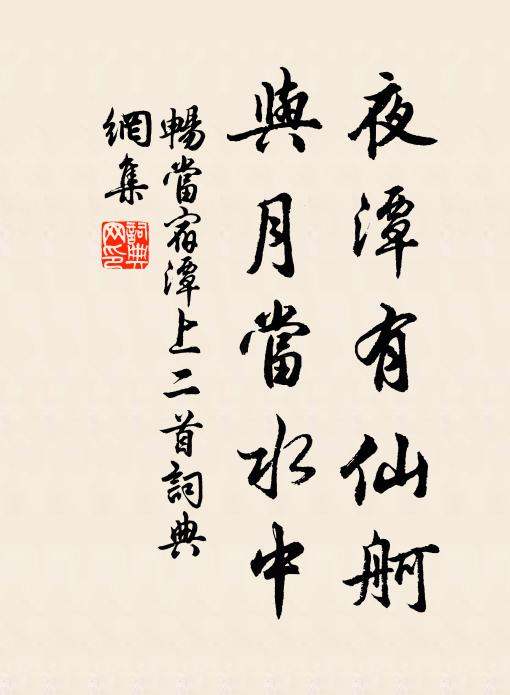 夜潭有仙舸
與月當水中
暢當宿潭上二首詞典
網集
詞典
网印